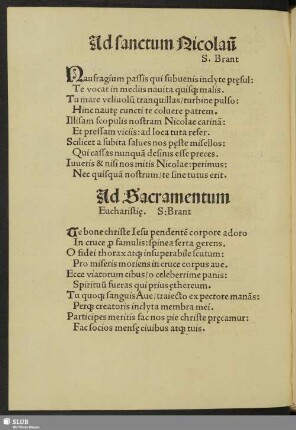 Ad sanctum Nicolaū
S. Brant
Naufragium passis qui subuenis inclyte pręsul:
Te vocat in mediis nauita quisq̃ malis.
Tu mare veliuolū tranquillas/turbine pulso:
Hinc nautę cuncti te coluere patrem.
Illisam scopulis nostram Nicolae carinā:
Et pressam viciis: ad loca tuta refer.
Scilicet a subita salues nos pęste misellos:
Qui cassas nunquā desinis esse preces.
Iuueris & nisi nos mitis Nicolae: perimus:
Nec quisquā nostrum/te sine tutus erit.
Ad Sacramentum
Eucharistię. S: Brant
Te bone christe Iesu pendentē corpore adoro
In cruce ꝓ famulis: spinea serta gerens.
O fidei thorax atq̃ insuperabile scutum:
Pro miseris moriens in cruce corpus aue.
Ecce viatorum cibus/o celeberrime panis:
Spirituū fueras qui prius ęthereum.
Tu quoq̃ sanguis Aue/traiecto ex pectore manās:
Perq̃ creatoris inclyta membra mei.
Participes meritis fac nos pie christe pręcamur:
Fac socios mensę ciuibus atq̃ tuis.
SLUB